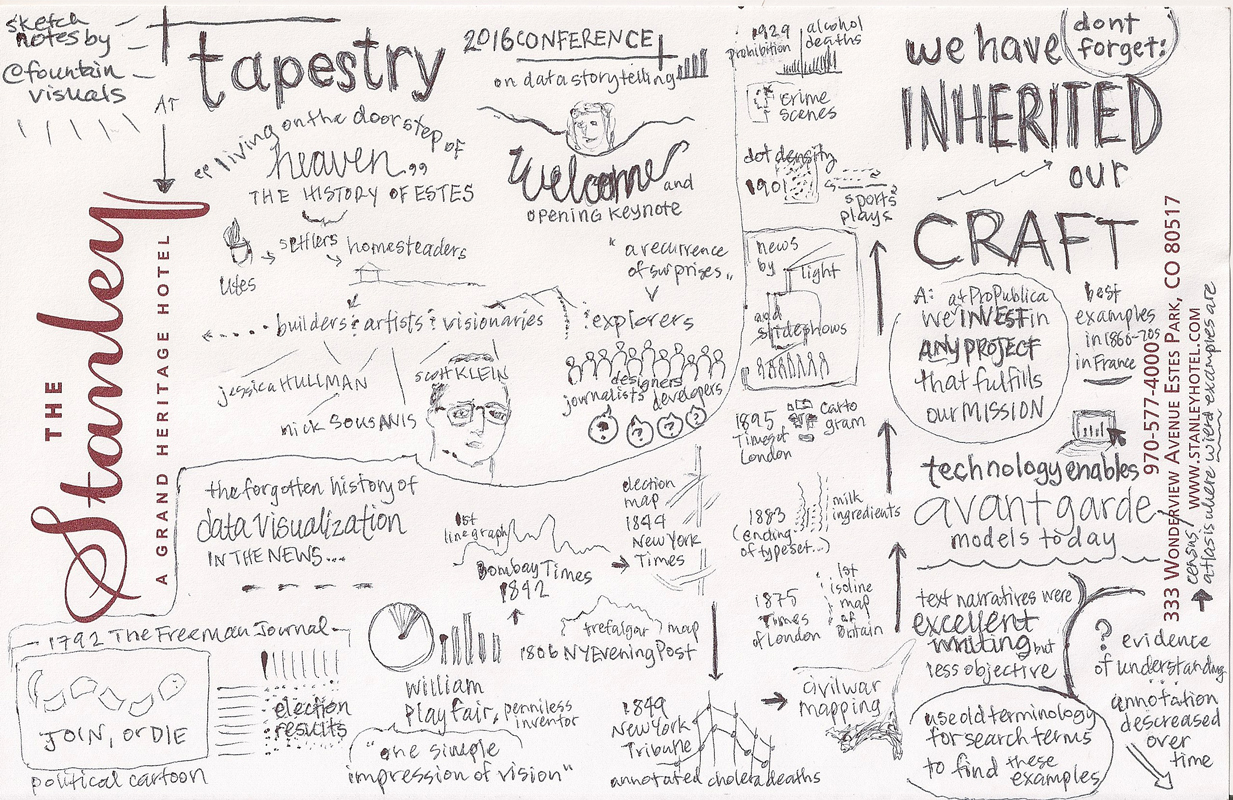 sketch
notes by
@fountain
visuals
AT
tapestry
2016 CONFERENCE
on data storytelling
"living on the doorstep of
heaven"
THE HISTORY OF ESTES
Utes
settlers
homesteaders
builders & artists & visionaries
explorers
Welcome and
OPENING KEYNOTE
"a recurrence
of surprises"
jessica HULLMAN
nick SOUSANIS
scott KLEIN
designers
journalists developers
? ? ? ?
THE
Stanley
A GRAND HERITAGE HOTEL
the forgotten history of
data visualization
IN THE NEWS...
1792 The Freeman Journal
JOIN, or DIE
political cartoon
election
results
William
Playfair, penniless
inventor
"one simple
impression of vision"
1806 NY Evening Post
trefalgar map
1st
line graph
Bombay Times
1842
election
map
1844
New York
Times
1849
New York
Tribune
annotated cholera deaths
civil war
mapping
1875
Times
of London
1st
isoline
map
of
Britain
1883
(ending
of typeset...)
milk
ingredients
1895
Times of
London
Carto
gram
news
by
light
and
slideshows
dot density
1901
sports
plays
crime
scenes
1929
prohibition
alcohol
deaths
we have
dont
forget:
INHERITED
our
CRAFT
A: at ProPublica
we INVEST in
ANY PROJECT
that fulfills
our MISSION
best
examples
in 1860-70s
in France
technology enables
avant garde
models today
→ census/
atlas is where wierd examples are
text narratives were
excellent
writing but
less objective
use old terminology
for search terms
to find these
examples
?
evidence
of understanding
annotation
descreased
over
time
333 WONDERVIEW AVENUE ESTES PARK, CO 80517
970-577-4000 / WWW.STANLEYHOTEL.COM